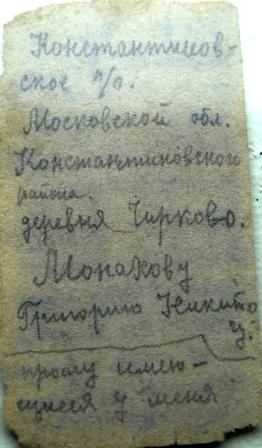 Константинов-
ское п/о.
Московской обл.
Константиновского
района.
деревня Чирково.
Монахову
Григорию Никито
чу.
прошу имею-
щиеся у меня